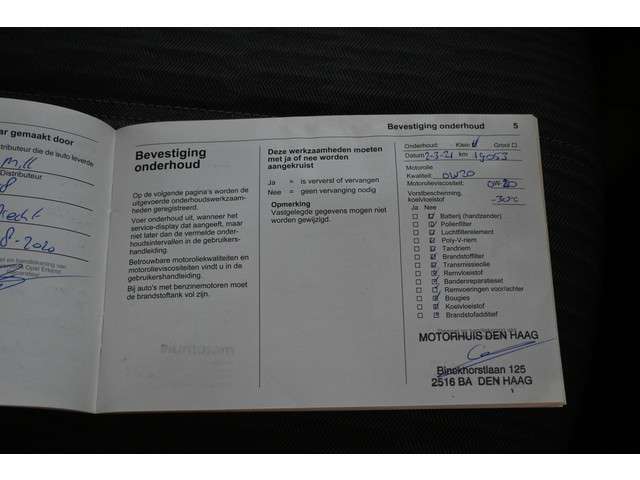 ar gemaakt door
tributeur die de auto leverde
M.II
Distributeur
8
recht
8-2020
Bevestiging onderhoud 5
Bevestiging
onderhoud
Op de volgende pagina's worden de
uitgevoerde onderhoudswerkzaam-
heden geregistreerd.
Voer onderhoud uit, wanneer het
service-display dat aangeeft, maar
niet later dan de vermelde onder-
houdsintervallen in de gebruikers-
handleiding.
Betrouwbare motoroliekwaliteiten en
motorolieviscositeiten vindt u in de
gebruikershandleiding.
Bij auto's met benzinemotoren moet
de brandstoftank vol zijn.
Deze werkzaamheden moeten
met ja of nee worden
aangekruist
Ja = is ververst of vervangen
Nee = geen vervanging nodig
Opmerking
Vastgelegde gegevens mogen niet
worden gewijzigd.
Onderhoud: Klein Groot
Datum 2-3-21 km 19053
Motorolie
Kwaliteit: 0W20
Motorolieviscositeit: 0W-20
Vorstbescherming,
koelvloeistof -30°C
Ja Nee
Batterij (handzender)
Pollenfilter
Luchtfilterelement
Poly-V-riem
Tandriem
Brandstoffilter
Transmissieolie
Remvloeistof
Bandenreparatieset
Remvoeringen voor/achter
Bougies
Koelvloeistof
Brandstofadditief
MOTORHUIS DEN HAAG
Binckhorstlaan 125
2516 BA DEN HAAG